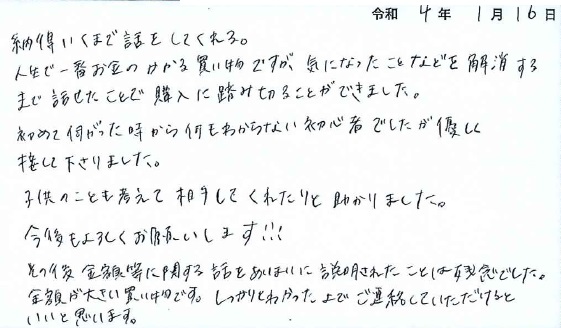 令和 4年 1月16日
納得いくまで話をしてくれる。
人生で一番お金のかかる買い物ですが、気になったことなどを解消する
まで話せたことで購入に踏み切ることができました。
初めて伺った時から何もわからない初心者でしたが優しく
接して下さりました。
子供のことも考えて相手してくれたりと助かりました。
今後もよろしくお願いします!!!
その後金額等に関する話をあいまいに説明されたことは残念でした。
金額が大きい買い物です。しっかりとわかった上でご連絡していただけると
いいと思います。